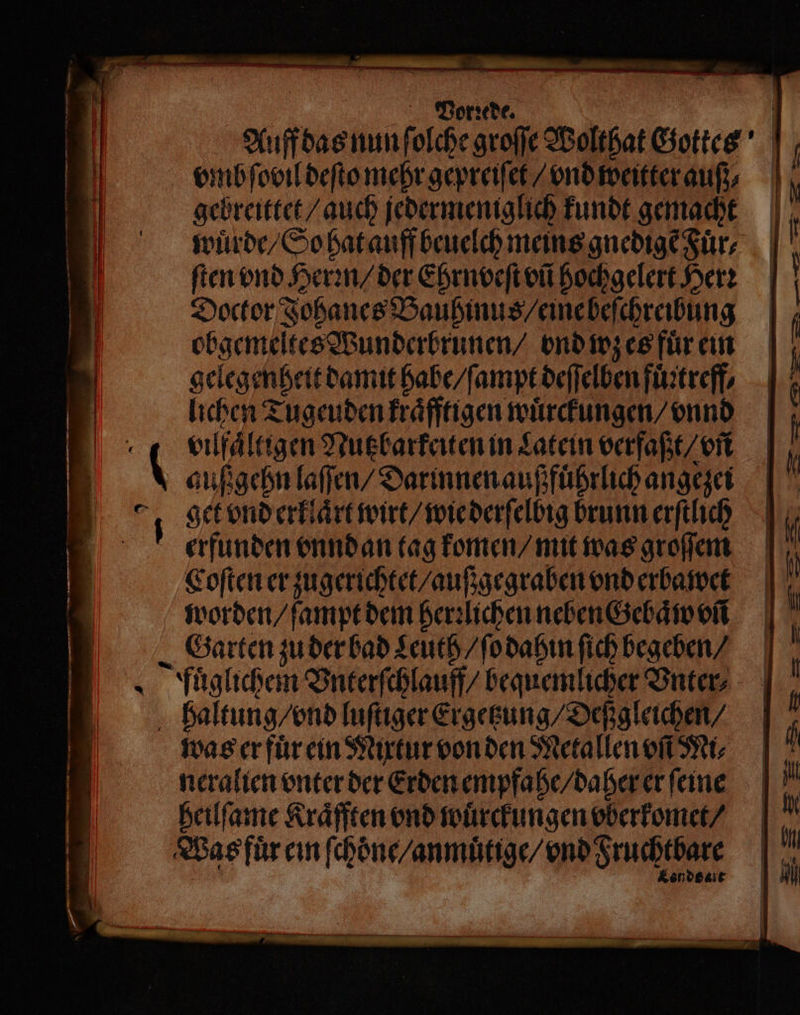 Vorꝛede.
Auff das nun ſolche groſſe Wolthat Gottes
vmb ſovil deſto mehr gepreiſet / vnd weitter auß⸗
gebreittet / auch jedermeniglich kundt gemacht
wuͤrde / So hat auff beuelch meins gnedigẽ Fuͤr⸗
ſten vnd Herꝛn / der Ehrnveſt vñ hochgelert Herꝛ
Doctor Johanes Bauhinus / eine beſchreibung
obgemeltes Wunderbrunen / vnd wz es fuͤr ein
gelegenheit damit habe / ſampt deſſelben fuͤꝛtreff⸗
lichen Tugeuden kraͤfftigen wuͤrckungen / vnnd
vilfaͤltigen Nutzbarkeiten in Latein verfaßt / vñ
außgehn laſſen / Darinnen außfuͤhrlich angezei
get vnd erklaͤrt wirt / wie derſelbig brunn erſtlich
erfunden vnnd an tag komen / mit was groſſem
Coſten er zugerichtet / außgegraben vnd erbawet
worden / ſampt dem herꝛlichen neben Gebaͤw vñ
Garten zu der bad Leuth / ſo dahin ſich begeben /
fuͤglichem Vnterſchlauff / bequemlicher Vnter⸗
haltung / vnd luſtiger Ergetzung / Deßgleichen /
was er fuͤr ein Mixtur von den Metallen vñ Mi⸗
neralien vnter der Erden empfahe / daher er ſeine
heilſame Kraͤfften vnd wuͤrckungen vberkomet /
Was fuͤr ein ſchoͤne / anmuͤtige / vnd Fruchtbare